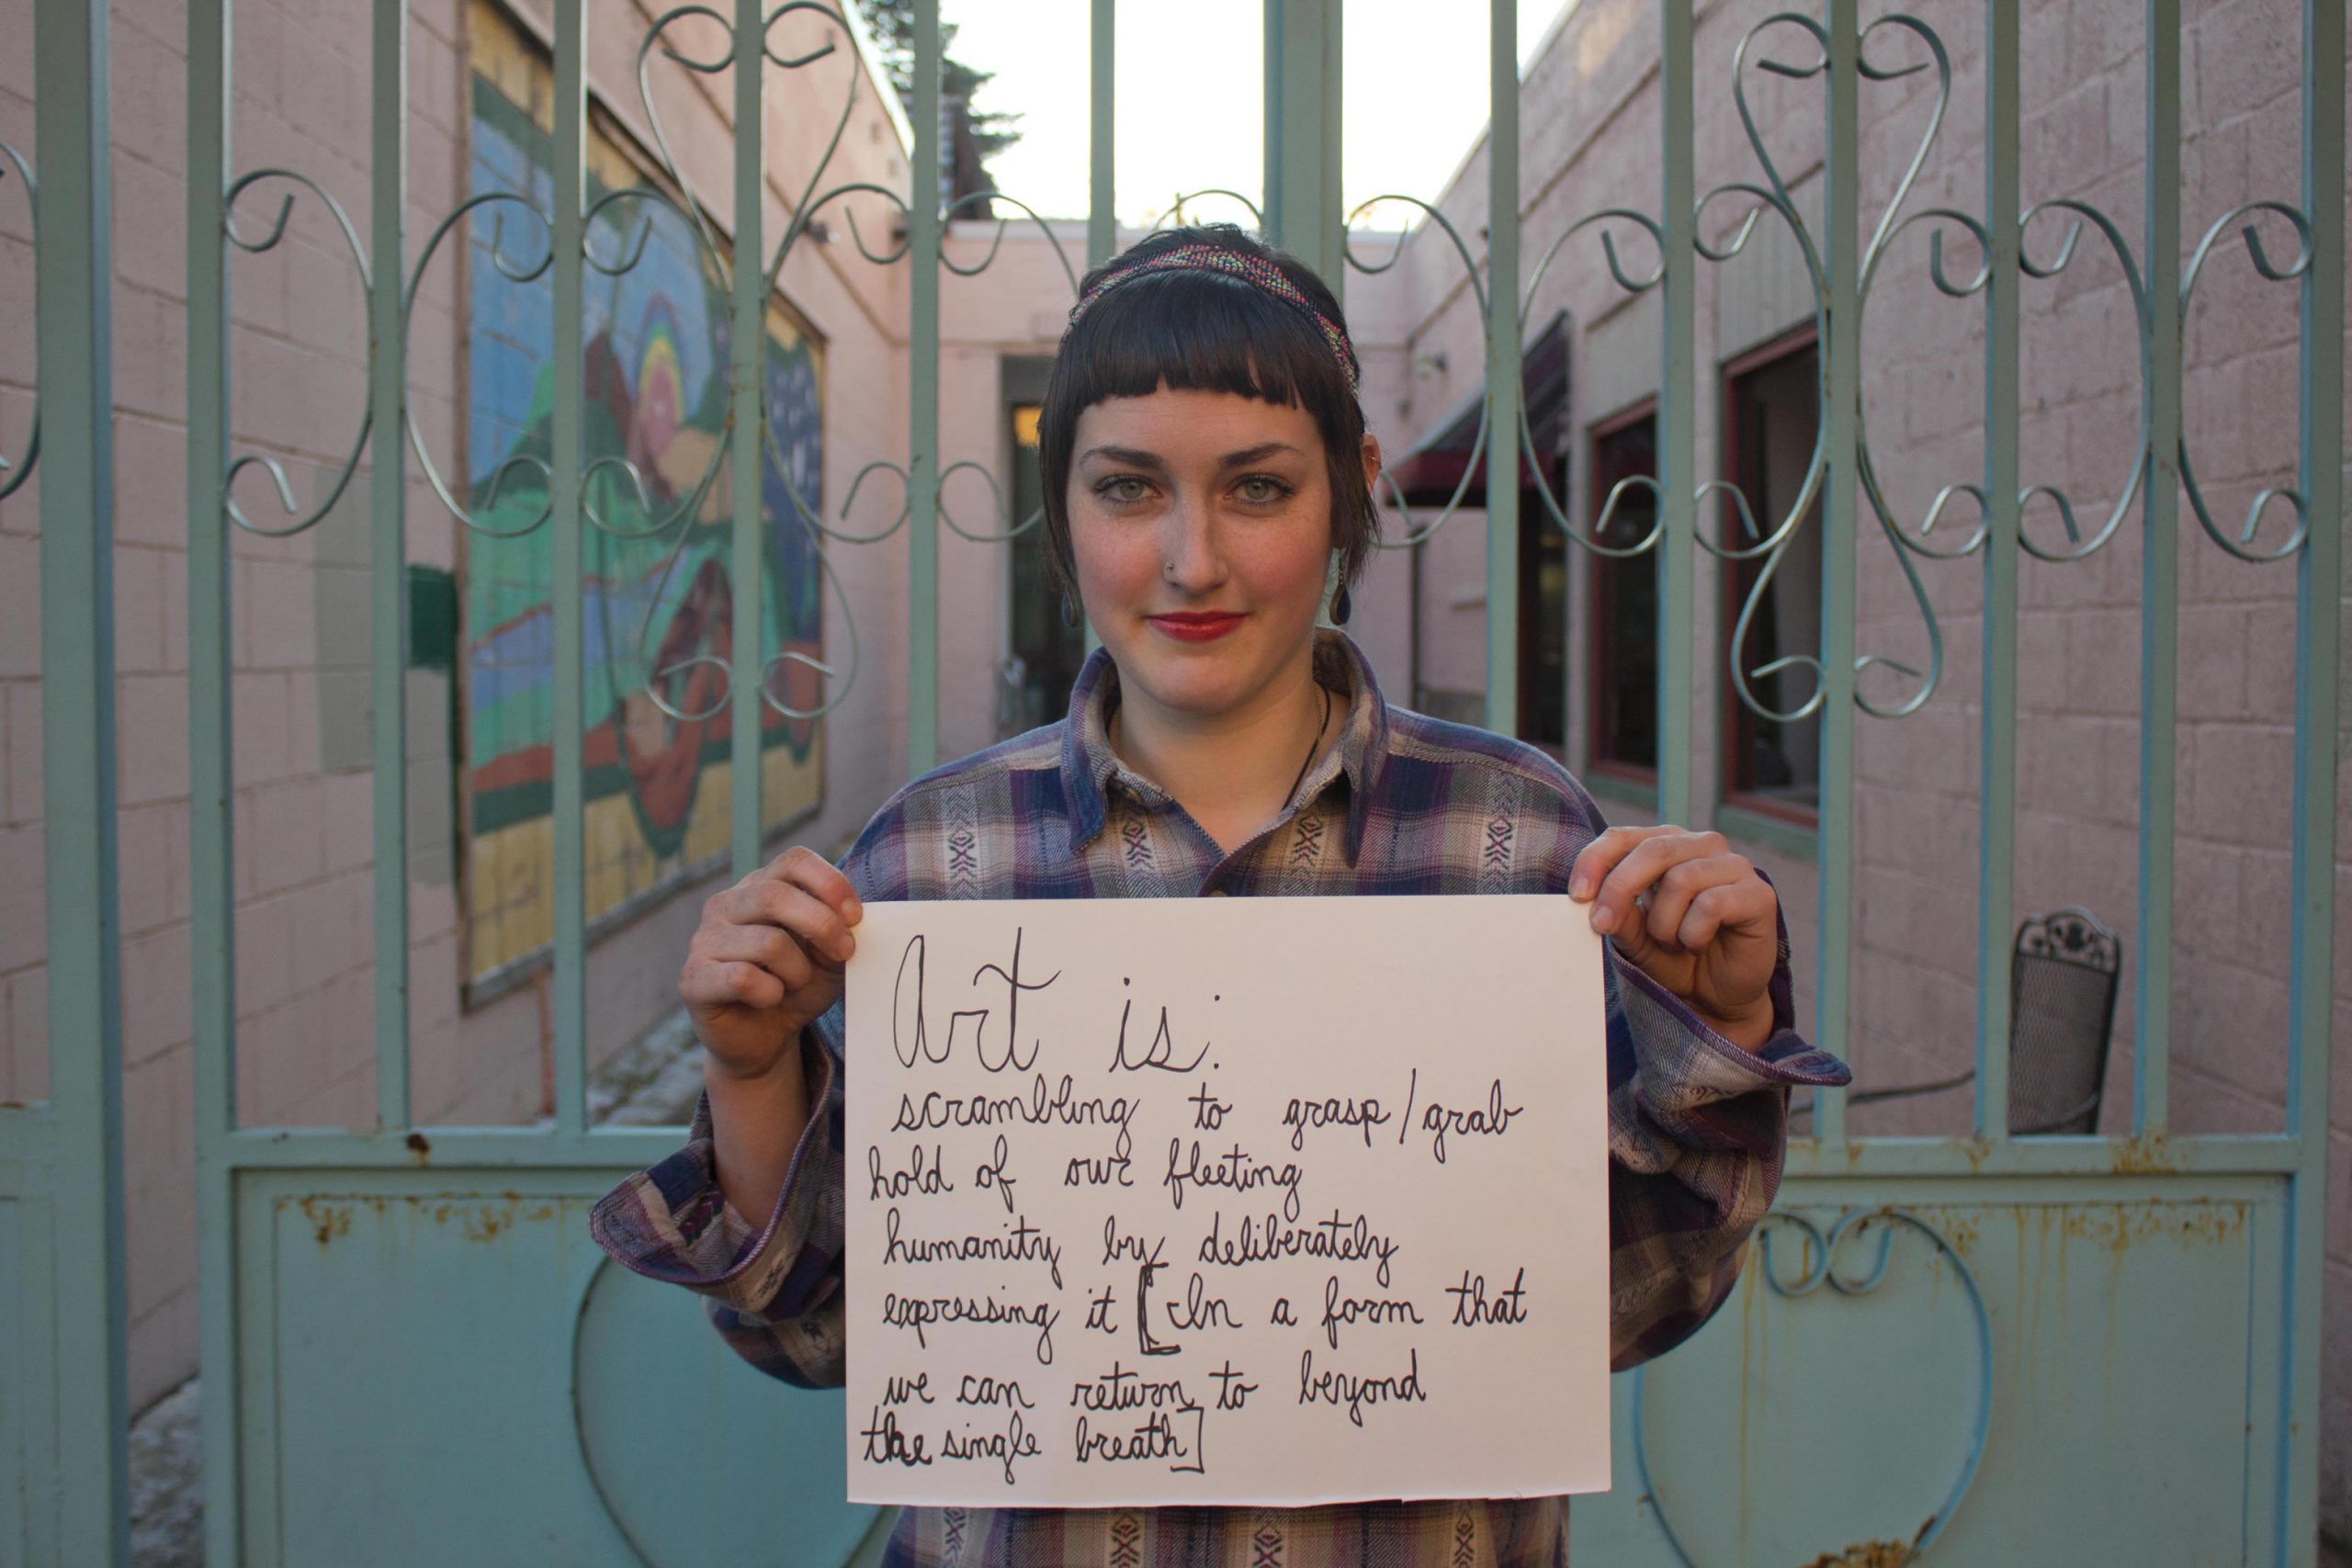 Art is:
scrambling to grasp/grab
hold of our fleeting
humanity by deliberately
expressing it [In a form that
we can return to beyond
the single breath]